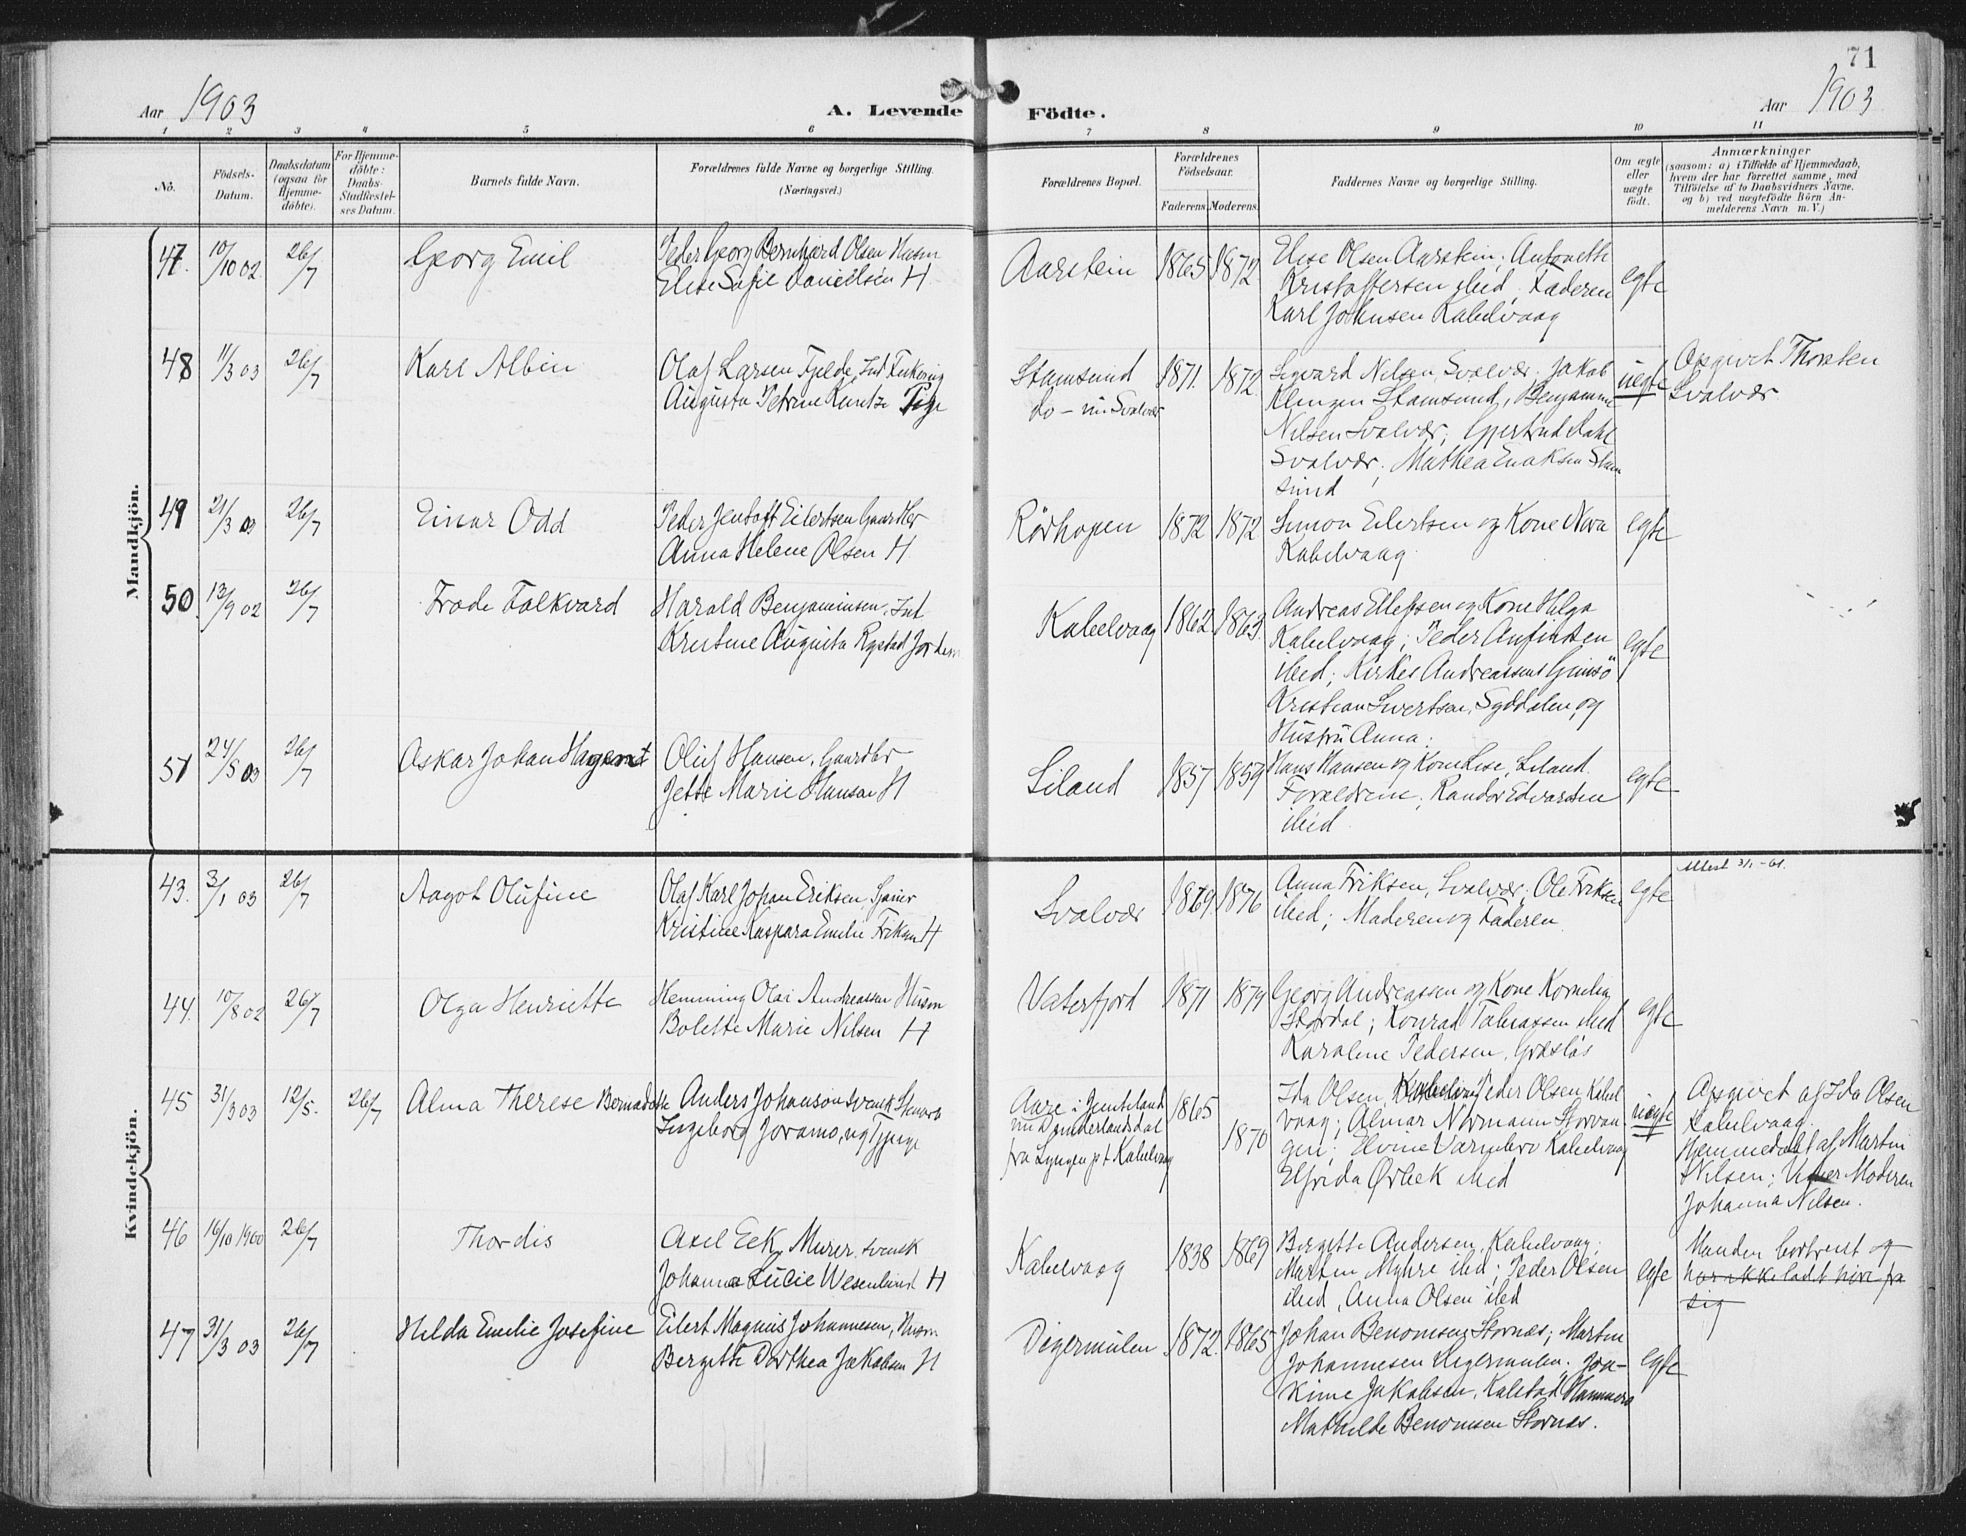 71
Aar 1903
A. Levende Födte.
Aar 1903
1 2 3 4 5 6 7 8 9 10 11
No.
Födsels-Datum.
Daabsdatum (ogsaa for Hjemme-döbte).
For Hjemme-döbte: Daabs-Stadfæstel-ses Datum.
Barnets fulde Navn.
Forældrenes fulde Navne og borgerlige Stilling.
(Næringsvei.)
Forældrenes Bopæl.
Forældrenes Födselsaar.
Faderens. Moderens.
Faddernes Navne og borgerlige Stilling.
Om ægte eller uægte födt.
Anmærkninger
(saasom: a) i Tilfælde af Hjemmedaab,
hvem der har forrettet samme, med
Tilföielse af to Daabsvidners Navne,
og b) ved uægtefödte Börn An-
melderens Navn m. V.)
Mandkjön.
47. 10/10 02 26/7 Georg Emil
Peder Georg Bernhard Olsen Husm
Elise Sofie Danielsen H.
Aarstein 1865 1872
Elise Olsen Aarstein; Antonette
Kristoffersen ibid, Faderen
Karl Johnsen Kabelvaag
egte
48 11/3 03 26/7 Karl Albin
Olaf Larsen Fjelde, Ind
Augusta Petrine Pige
Stamsund
do - nu Svolvær
1871. 1872
Sigvard Nilsen, Svolvær; Jakob
Klingen Stamsund, Benjamine
Nilsen Svolvær; Gjertrud Dahl
Svolvær; Mathea Stam
sund
uegte
Opgivet Thorsten
Svolvær
49 21/3 03 26/7 Einar Odd
Peder Jentoft Eilertsen Gaardbr
Anna Helene Olsen H.
Rørhopen 1872 1872
Simon Eilertsen og Kone Nora
Kabelvaag.
egte
50. 13/9 02 26/7 Frode Falkvard
Harald Benjaminsen, Ind
Kristine Augusta Rystad
Kabelvaag 1862 1863
Andreas Ellefsen og Kone Helga
Kabelvaag; Peder Anfindsen
ibid; Andreassens Gimsö
Kristian Sivertsen, Syddalen, og
Hustru Anna.
egte
51 24/5 03 26/7 Askar Johan Hagent
Oluf Hansen, Gaardbr
Jette Marie Hansen H
Liland 1857 1859
Hans Hansen og Kone Lise, Liland.
Forældrene; Randor Edvardsen
ibid
egte
Kvindekjön.
43. 3/1 03 26/7 Aagot Olufine
Olaf Karl Johan Eriksen,
Kristine Kaspara Emilie H
Svolvær 1869 1876
Anna Eriksen, Svolvær; Ole
ibid; Moderen og Faderen.
egte
Attest 3/1 -61.
44. 10/8 02 26/7 Olga Henriette
Hemming Olai Andreassen Husm
Bolette Marie Nilsen H
Vaterfjord 1871 1874
Georg Andreassen og Kone Kornelia
Stordal; Konrad Tobiassen ibid
Karoline Pedersen,
egte
45 31/3 03 12/5. 26/7 Alma Therese Bernadotte
Anders Johanson svensk
Ingeborg Joramo, ug Pige
Aare i Jemteland
nu Dunderlandsdal
fra Lyngen pt Kabelvaag
1865 1870
Ida Olsen, Kabelvaag Peder Olsen Kabel
vaag; Almar Normann Storvaa
gen; Elvine Kabelvaag
Elfrida Ørbek ibid
uegte
Opgivet af Ida Olsen
Kabelvaag.
Hjemmedöbt af Martin
Nilsen; Moderen
Johanna Nilsen.
46 16/10 1900 26/7 Thordis
Axel Eek, Murer, svensk
Johanna Lucie Wesenlund H
Kabelvaag 1838 1869
Bergitte Andersen, Kabelvaag;
Martin Myhre ibd; Peder Olsen
ibid, Anna Olsen ibd
egte
Manden bortreist og
har ikke ladt høre fra
sig
47 31/3 03 26/7 Hilda Emilie Josefine
Eilert Magnus Johannesen, Husm
Bergitte Dorthea Jakobsen H
Digermulen 1872. 1865
Johan Benonisen, Stornæs; Martin
Johannesen Digermulen; Joa-
kime Jakobsen, Kalstad Hammerø
Mathilde Benonisen Stornæs.
egte